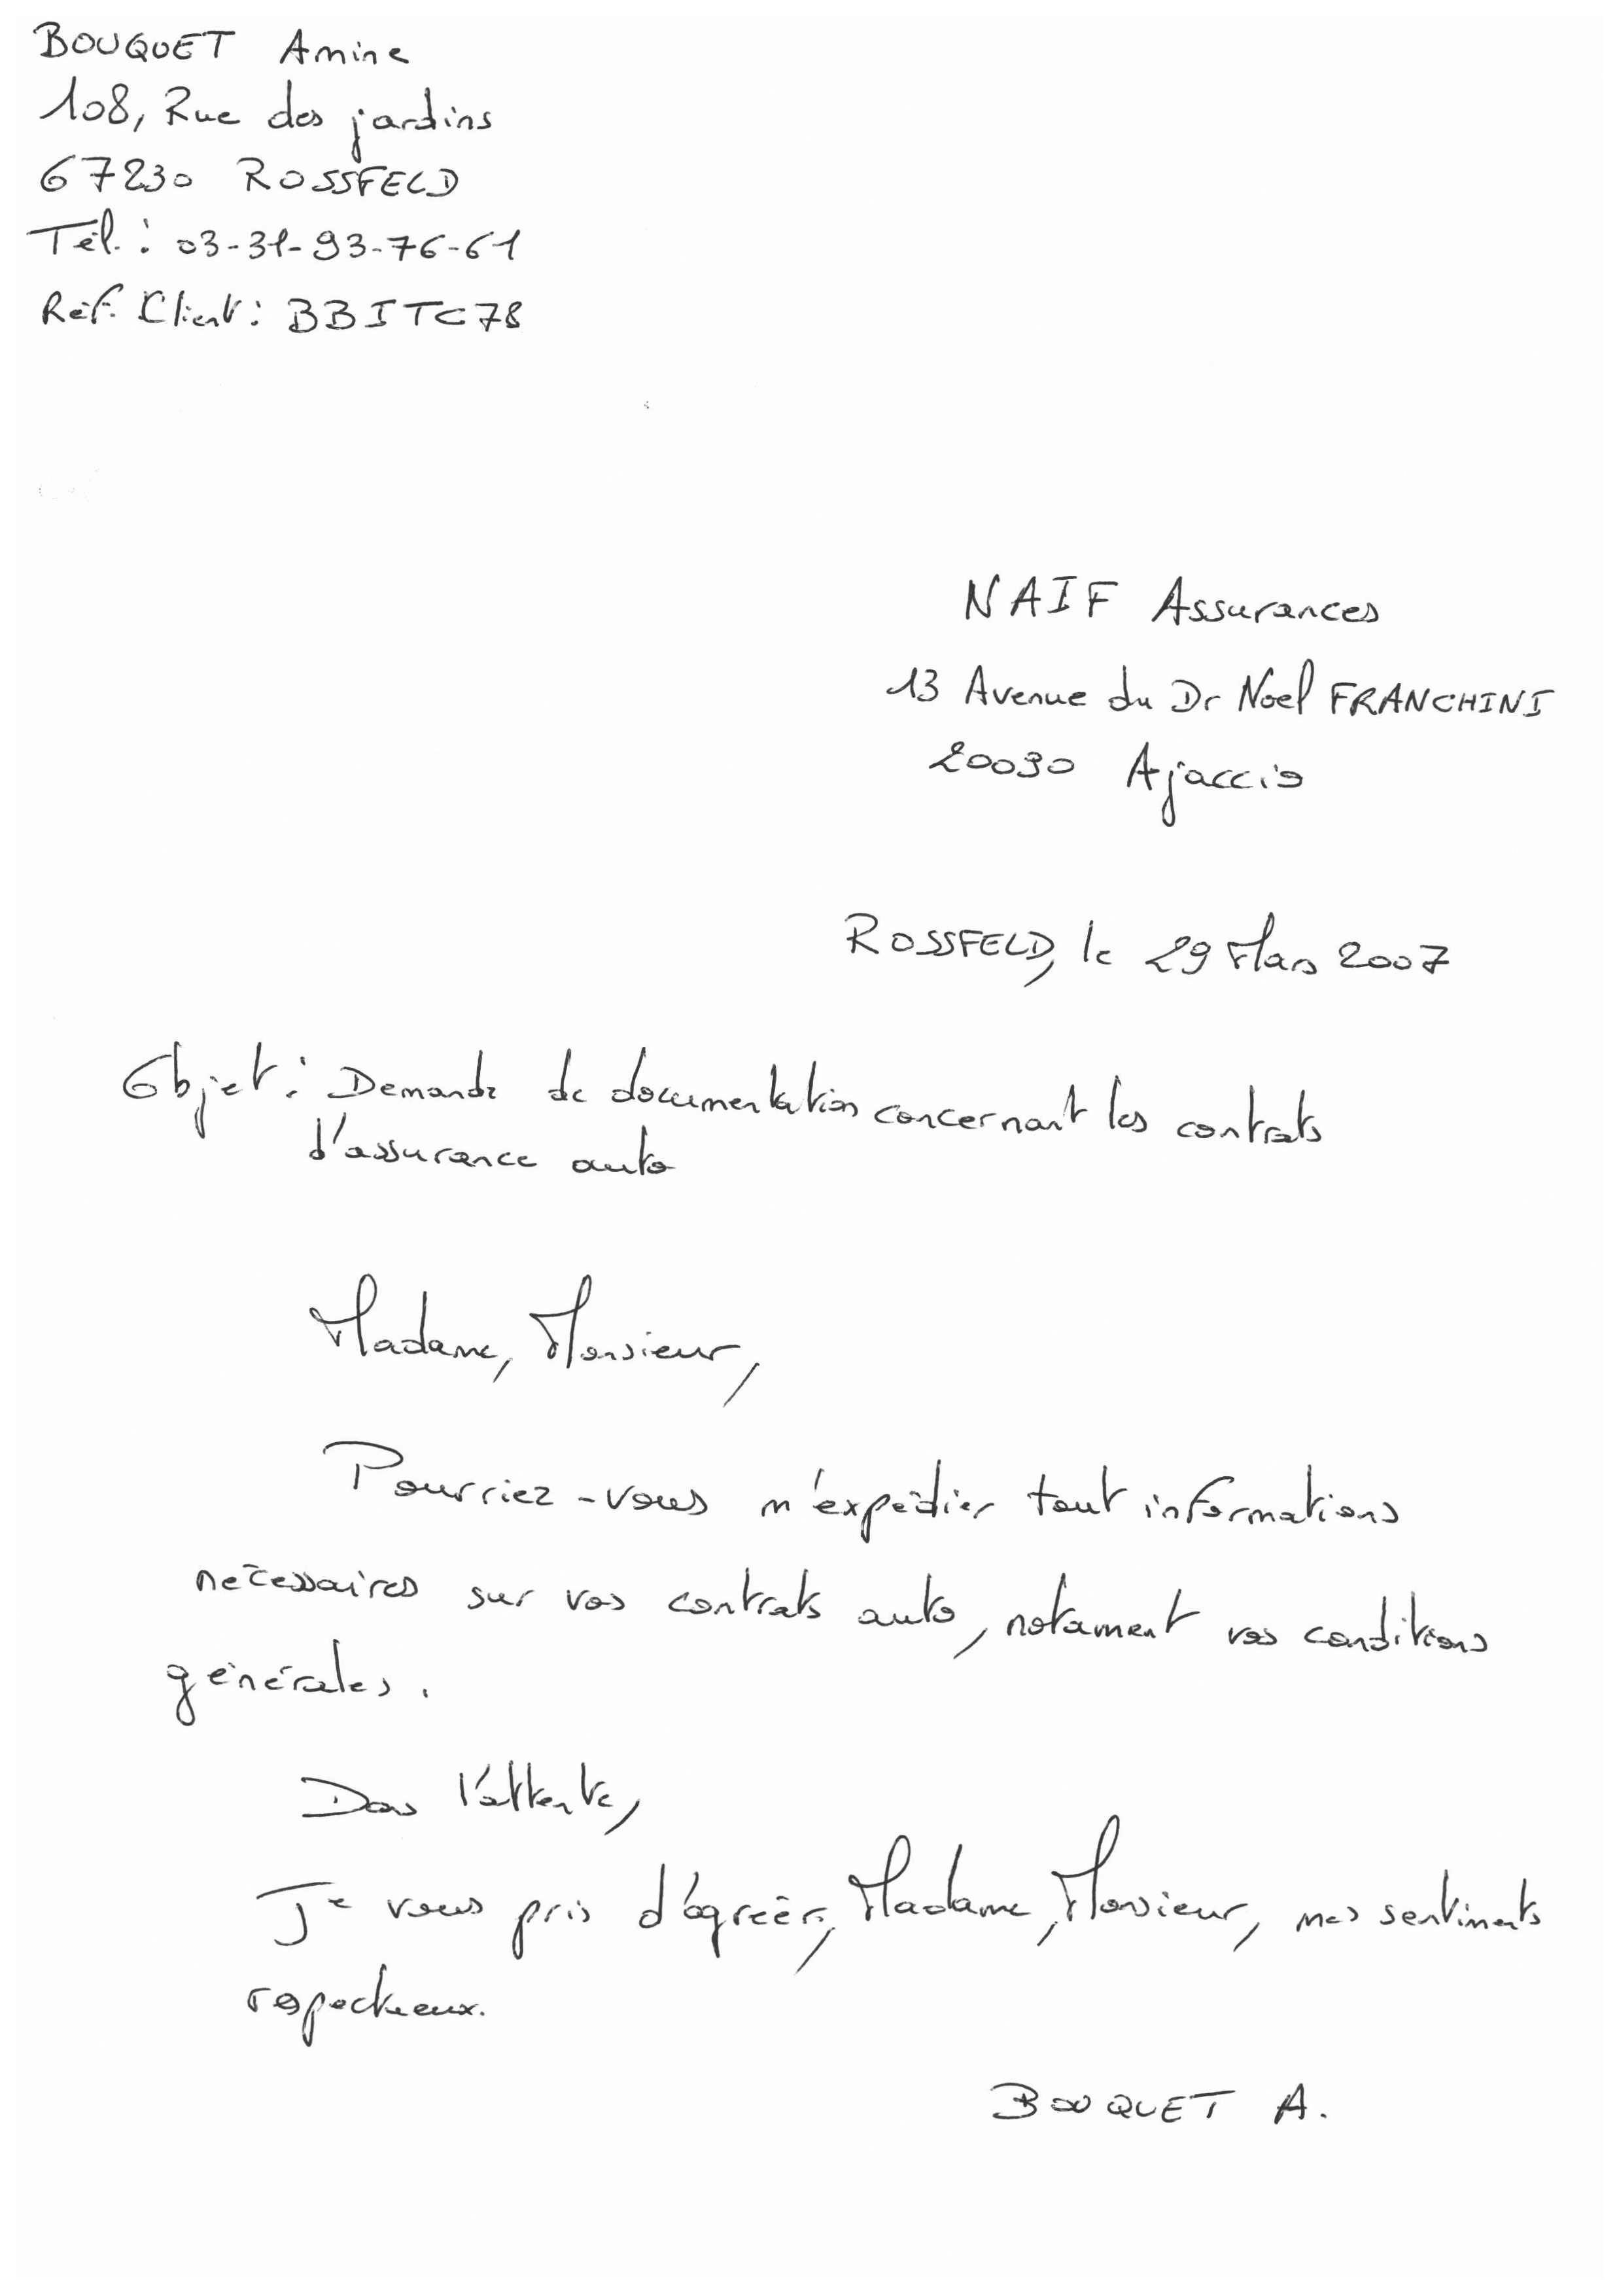 BOUQUET Amine
108, Rue des jardins
67230 ROSSFELD
Tél. : 03-31-93-76-61
Réf. Client : BBITC78
NAIF Assurances
13 Avenue du Dr Noel FRANCHINI
20090 Ajaccio
ROSSFELD, le 29 Mars 2007
Objet : Demande de documentation concernant les contrats
d'assurance auto
Madame, Monsieur,
Pourriez-vous m'expédier tout informations
nécessaires sur vos contrats auto, notament vos conditions
générales.
Dans l'attente,
Je vous pris d'agréer, Madame, Monsieur, mes sentiments
respectueux.
BOUQUET A.